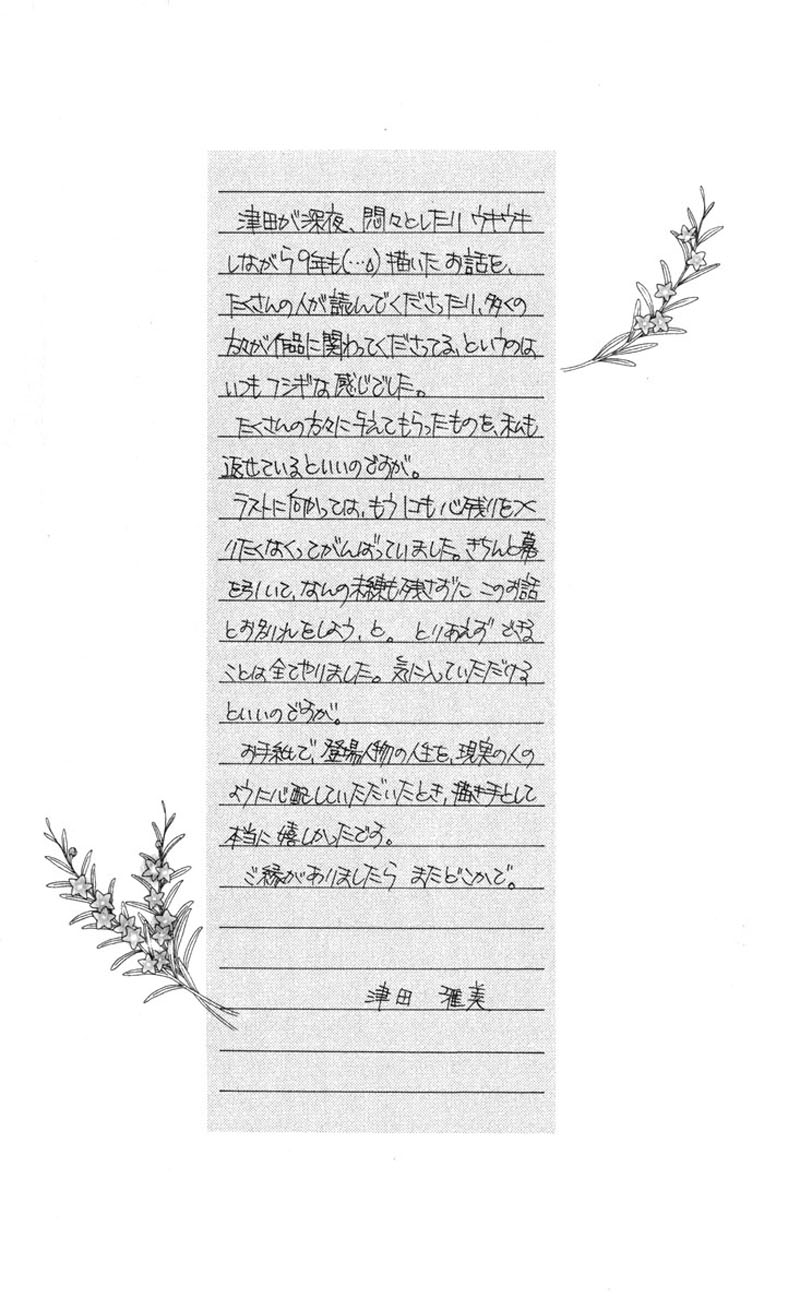 津田が深夜、悶々としたり ウキウキ
しながら9年も(…▵)描いた お話を、
たくさんの人が読んでくださったり、多くの
方々が作品に関わってくださってる、というのは
いつもフシギな感じでした。
たくさんの方々に与えてもらったものを、私も
返せているといいのですが。
ラストに向かっては、もう にも心残りをつく
りたくなくってがんばっていました。きちんと幕
を引いて、なんの未練も残さずに このお話
とお別れをしよう、と。 とりあえず できる
ことは全てやりました。気に入っていただける
といいのですが。
お手紙で、登場人物の人生を、現実の人の
ように心配していただいたとき、描き手として
本当に嬉しかったです。
ご縁がありましたら またどこかで。
津田 雅美